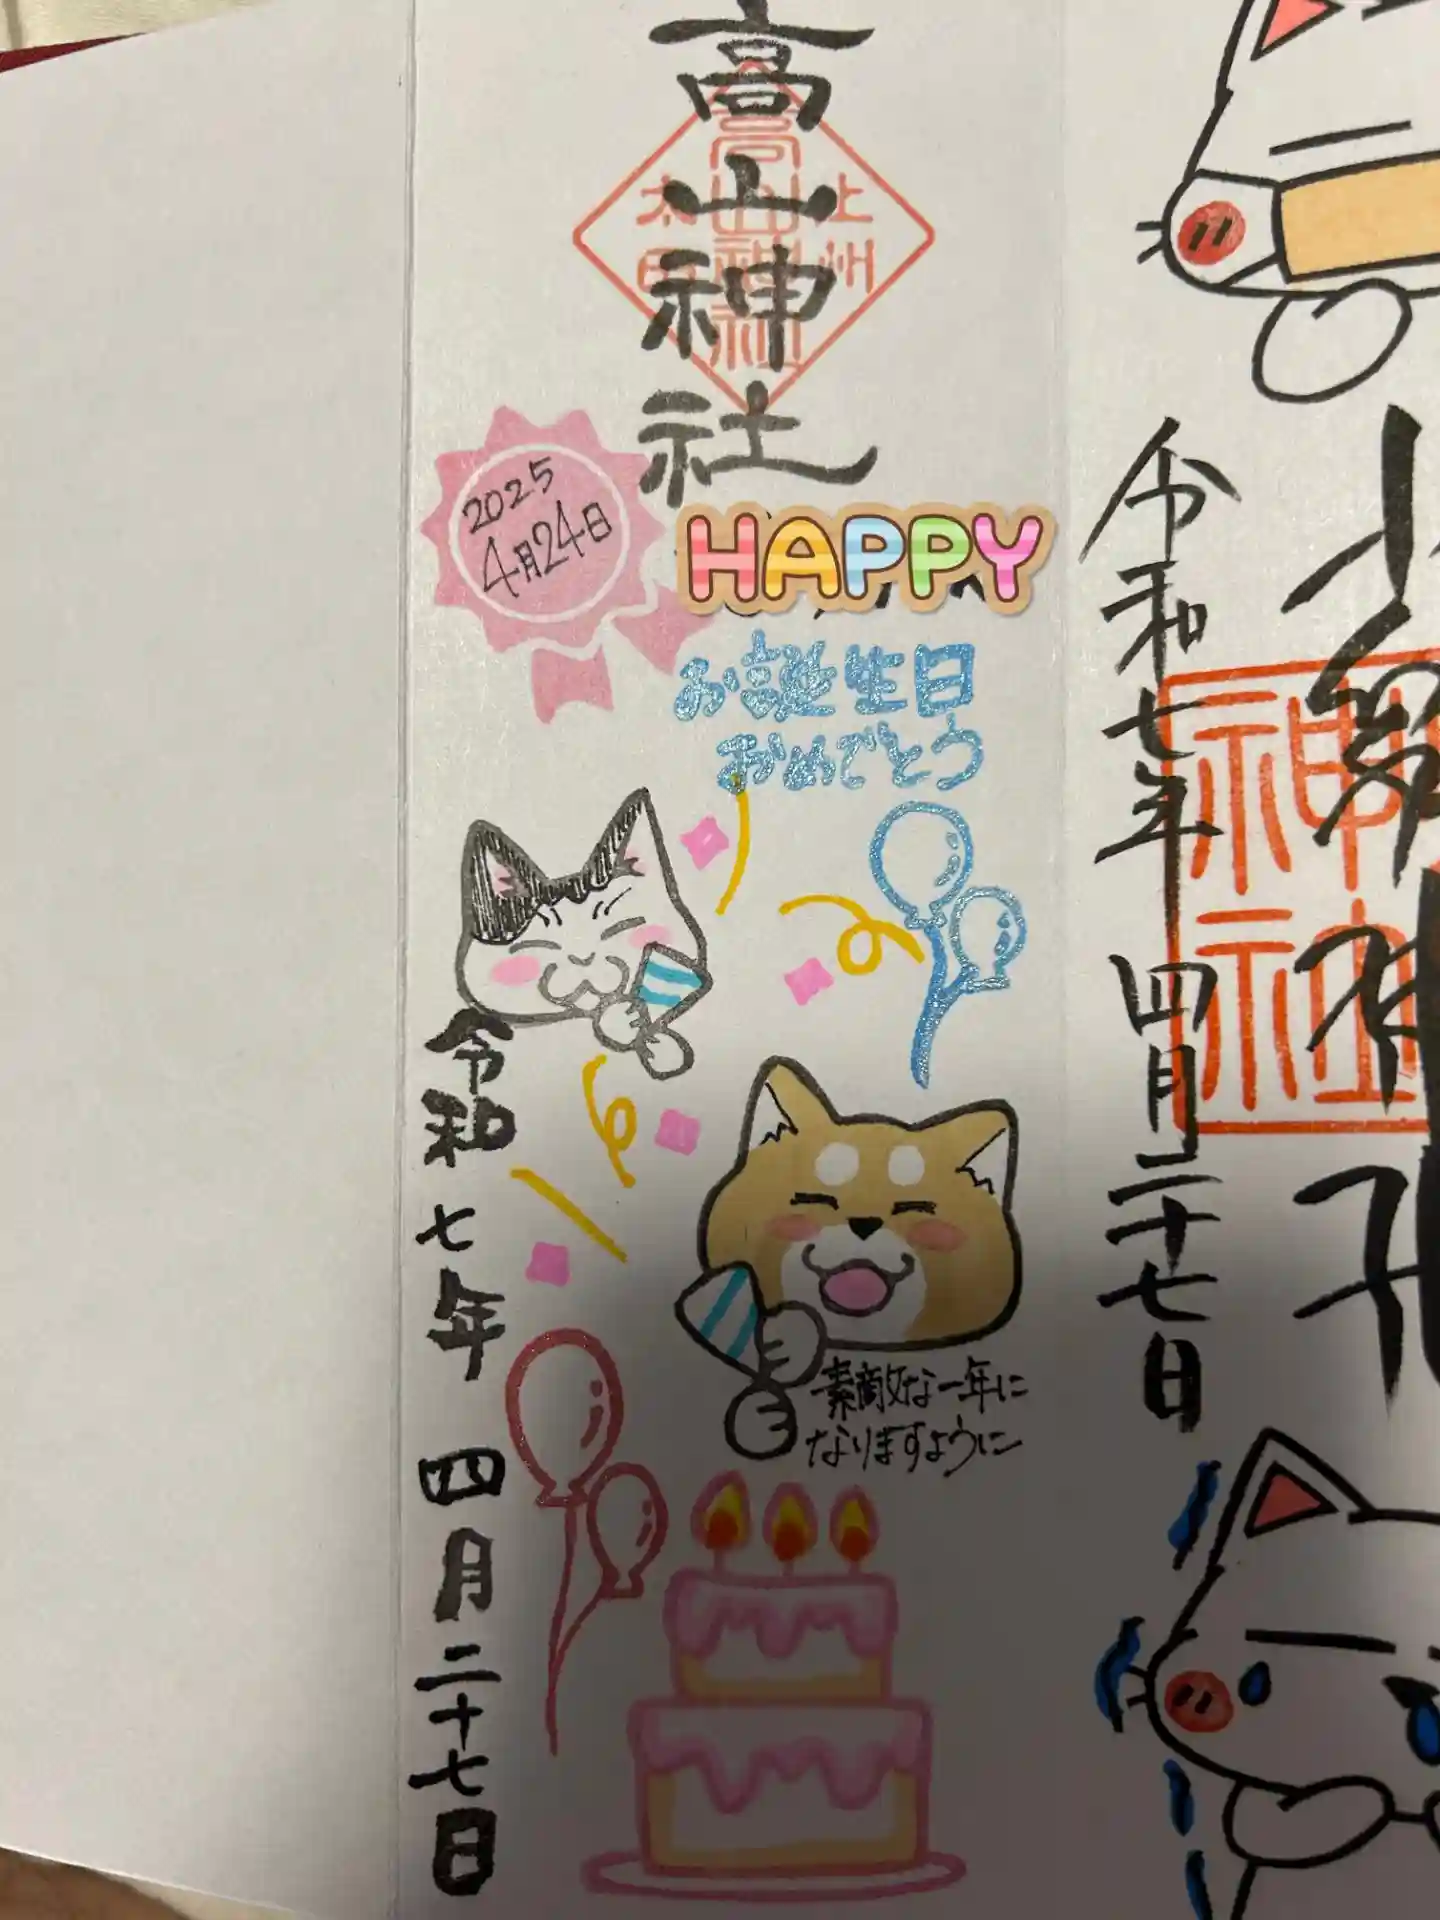 高山神社
上州
太田
高山神社
2025
4月24日
HAPPY
お誕生日
おめでとう
素敵な一年に
なりますように
令和七年 四月二十七日
令和七年 四月二十七日
神社